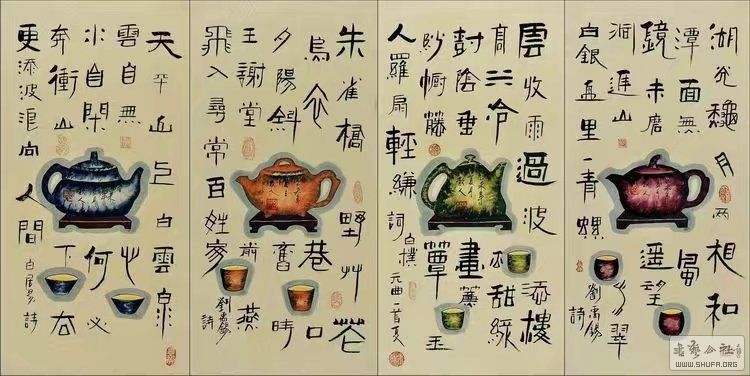 湖光龝月兩相和
潭面無風
鏡未磨遥望
洞庭山水翠
白銀盘里一青螺
劉禹錫詩
雲收雨過波添樓
高水冷瓜甜綠
樹陰垂畫簷
紗幮藤簟玉
人羅扇輕縑
詞白樸元曲一首夏
朱雀橋野艸花
烏衣巷口
夕陽斜舊時
王謝堂前燕
飛入尋常百姓家
劉禹錫詩
天平山上白雲泉
雲自無心
水自閑何必
奔衝山下去
更添波浪向人間
白居易詩
WWW.SHUFA.ORG